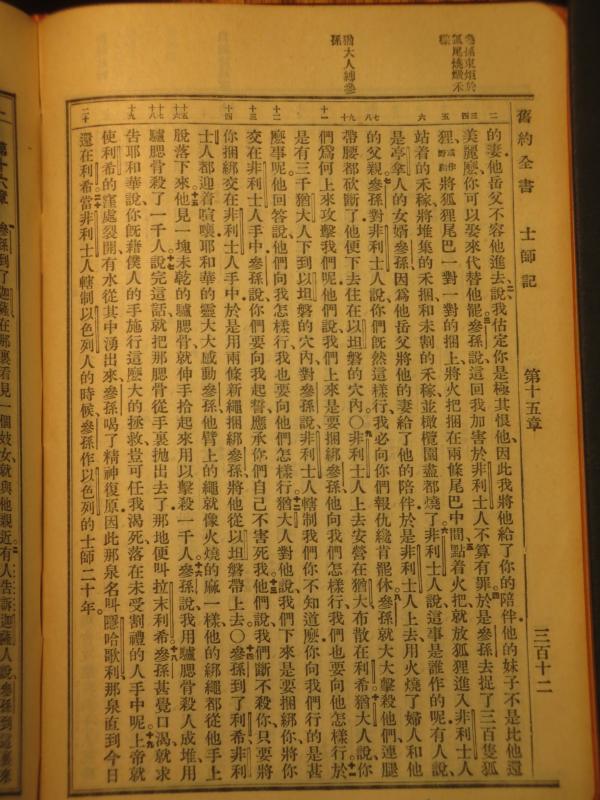 舊約全書　士師記　第十五章　三百十二
的妻他岳父不容他進去說我估定你是極其恨他因此我將他給了你的陪伴他的妹子不是比他還
美麗麼你可以娶來代替他罷參孫說這回我加害於非利士人不算有罪於是參孫去捉了三百隻狐
狸或作野狗將狐狸尾巴一對一對的捆上將火把捆在兩條尾巴中間點着火把就放狐狸進入非利士人
站着的禾稼將堆集的禾捆和未割的禾稼並橄欖園盡都燒了非利士人說這事是誰作的呢有人說
是亭拿人的女婿參孫因為他岳父將他的妻給了他的陪伴於是非利士人上去用火燒了婦人和他
的父親參孫對非利士人說你們既然這樣行我必向你們報仇纔肯罷休參孫就大大擊殺他們連腿
帶腰都砍斷了他便下去住在以坦磐的穴內〇非利士人上去安營在猶大布散在利希猶大人說你
們為何上來攻擊我們呢他們說我們上來是要捆綁參孫他向我們怎樣行我們也要向他怎樣行於
是有三千猶大人下到以坦磐的穴內對參孫說非利士人轄制我們你不知道麼你向我們行的是甚
麼事呢他回答說他們向我怎樣行我也要向他們怎樣行猶大人對他說我們下來是要捆綁你將你
交在非利士人手中參孫說你們要向我起誓應承你們自己不害死我他們說我們斷不殺你只要將
你捆綁交在非利士人手中於是用兩條新繩捆綁參孫將他從以坦磐帶上去〇參孫到了利希非利
士人都迎着喧嚷耶和華的靈大大感動參孫他臂上的繩就像火燒的麻一樣他的綁繩都從他手上
脫落下來他見一塊未乾的驢腮骨就伸手拾起來用以擊殺一千人參孫說我用驢腮骨殺人成堆用
驢腮骨殺了一千人說完這話就把那腮骨從手裏拋出去了那地便叫拉末利希參孫甚覺口渴就求
告耶和華說你既藉僕人的手施行這麼大的拯救豈可任我渴死落在未受割禮的人手中呢上帝就
使利希的窪處裂開有水從其中湧出來參孫喝了精神復原因此那泉名叫隱哈歌利那泉直到今日
還在利希當非利士人轄制以色列人的時候參孫作以色列的士師二十年
第十六章　參孫到了迦薩在那裏看見一個妓女就與他親近有人告訴迦薩人說參孫到這裏來